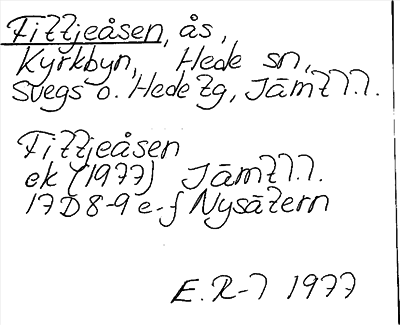 Fittjeåsen, ås,
Kyrkbyn, Hede sn,
Svegs o. Hede tg, Jämtl.l.
Fittjeåsen
ek (1977) Jämtl.l.
17D 8-9 e-f Nysätern
E.R-l 1977